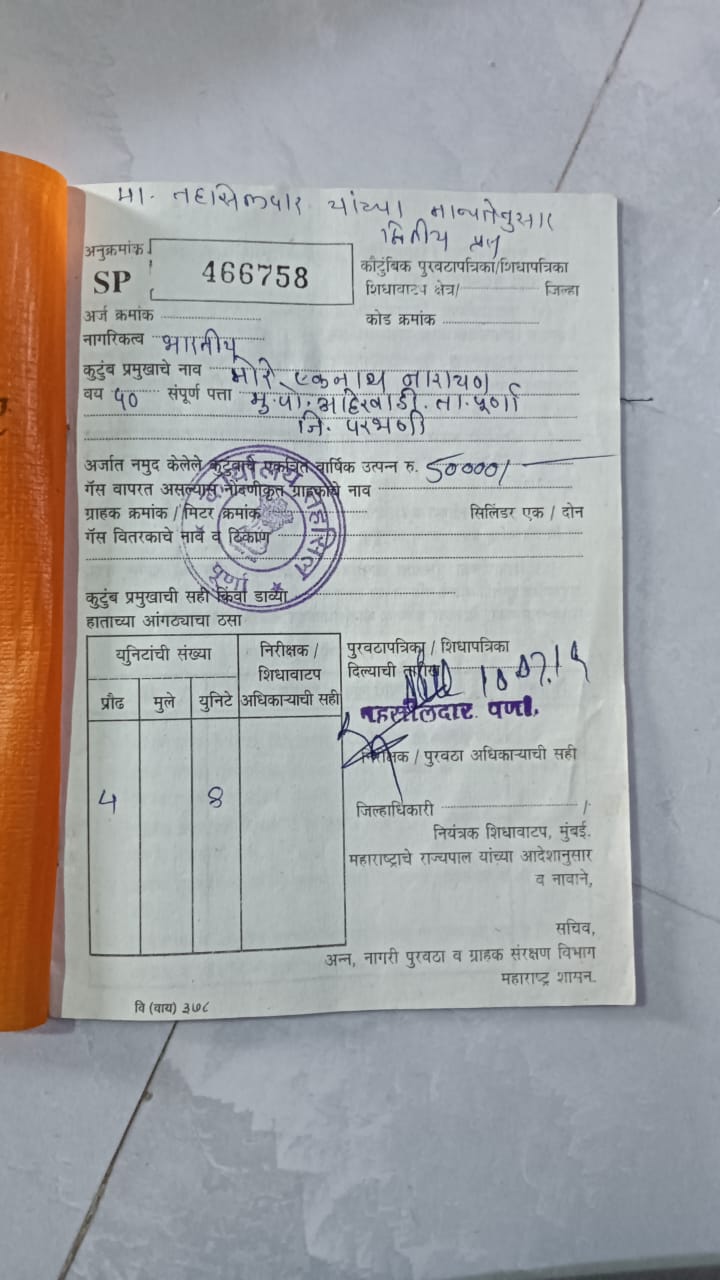 मा. तहसिलदार यांच्या मान्यतेनुसार
द्वितीय प्रत
अनुक्रमांक
SP 466758
कौटुंबिक पुरवठापत्रिका/शिधापत्रिका
शिधावाटप क्षेत्र/ जिल्हा
अर्ज क्रमांक
कोड क्रमांक
नागरिकत्व भारतीय
कुटुंब प्रमुखाचे नाव मोरे एकनाथ नारायण
वय ५० संपूर्ण पत्ता मु.पो. अहिरवाडी. ता. पूर्णा
जि. परभणी
अर्जात नमुद केलेले कुटुंबाचे एकत्रित वार्षिक उत्पन्न रु. 50000/
गॅस वापरत असल्यास नोंदणीकृत ग्राहकाचे नाव
ग्राहक क्रमांक / मिटर क्रमांक सिलिंडर एक / दोन
गॅस वितरकाचे नाव व ठिकाण
कार्यालय तहसिल
पूर्णा
कुटुंब प्रमुखाची सही किंवा डाव्या
हाताच्या आंगठ्याचा ठसा
युनिटांची संख्या
निरीक्षक /
शिधावाटप
अधिकाऱ्याची सही
प्रौढ मुले युनिटे
4 8
पुरवठापत्रिका / शिधापत्रिका
दिल्याची तारीख
तहसीलदार पूर्णा.
निरीक्षक / पुरवठा अधिकाऱ्याची सही
जिल्हाधिकारी /
नियंत्रक शिधावाटप, मुंबई.
महाराष्ट्राचे राज्यपाल यांच्या आदेशानुसार
व नावाने,
सचिव,
अन्न, नागरी पुरवठा व ग्राहक संरक्षण विभाग
महाराष्ट्र शासन.
वि (वाय) ३७८